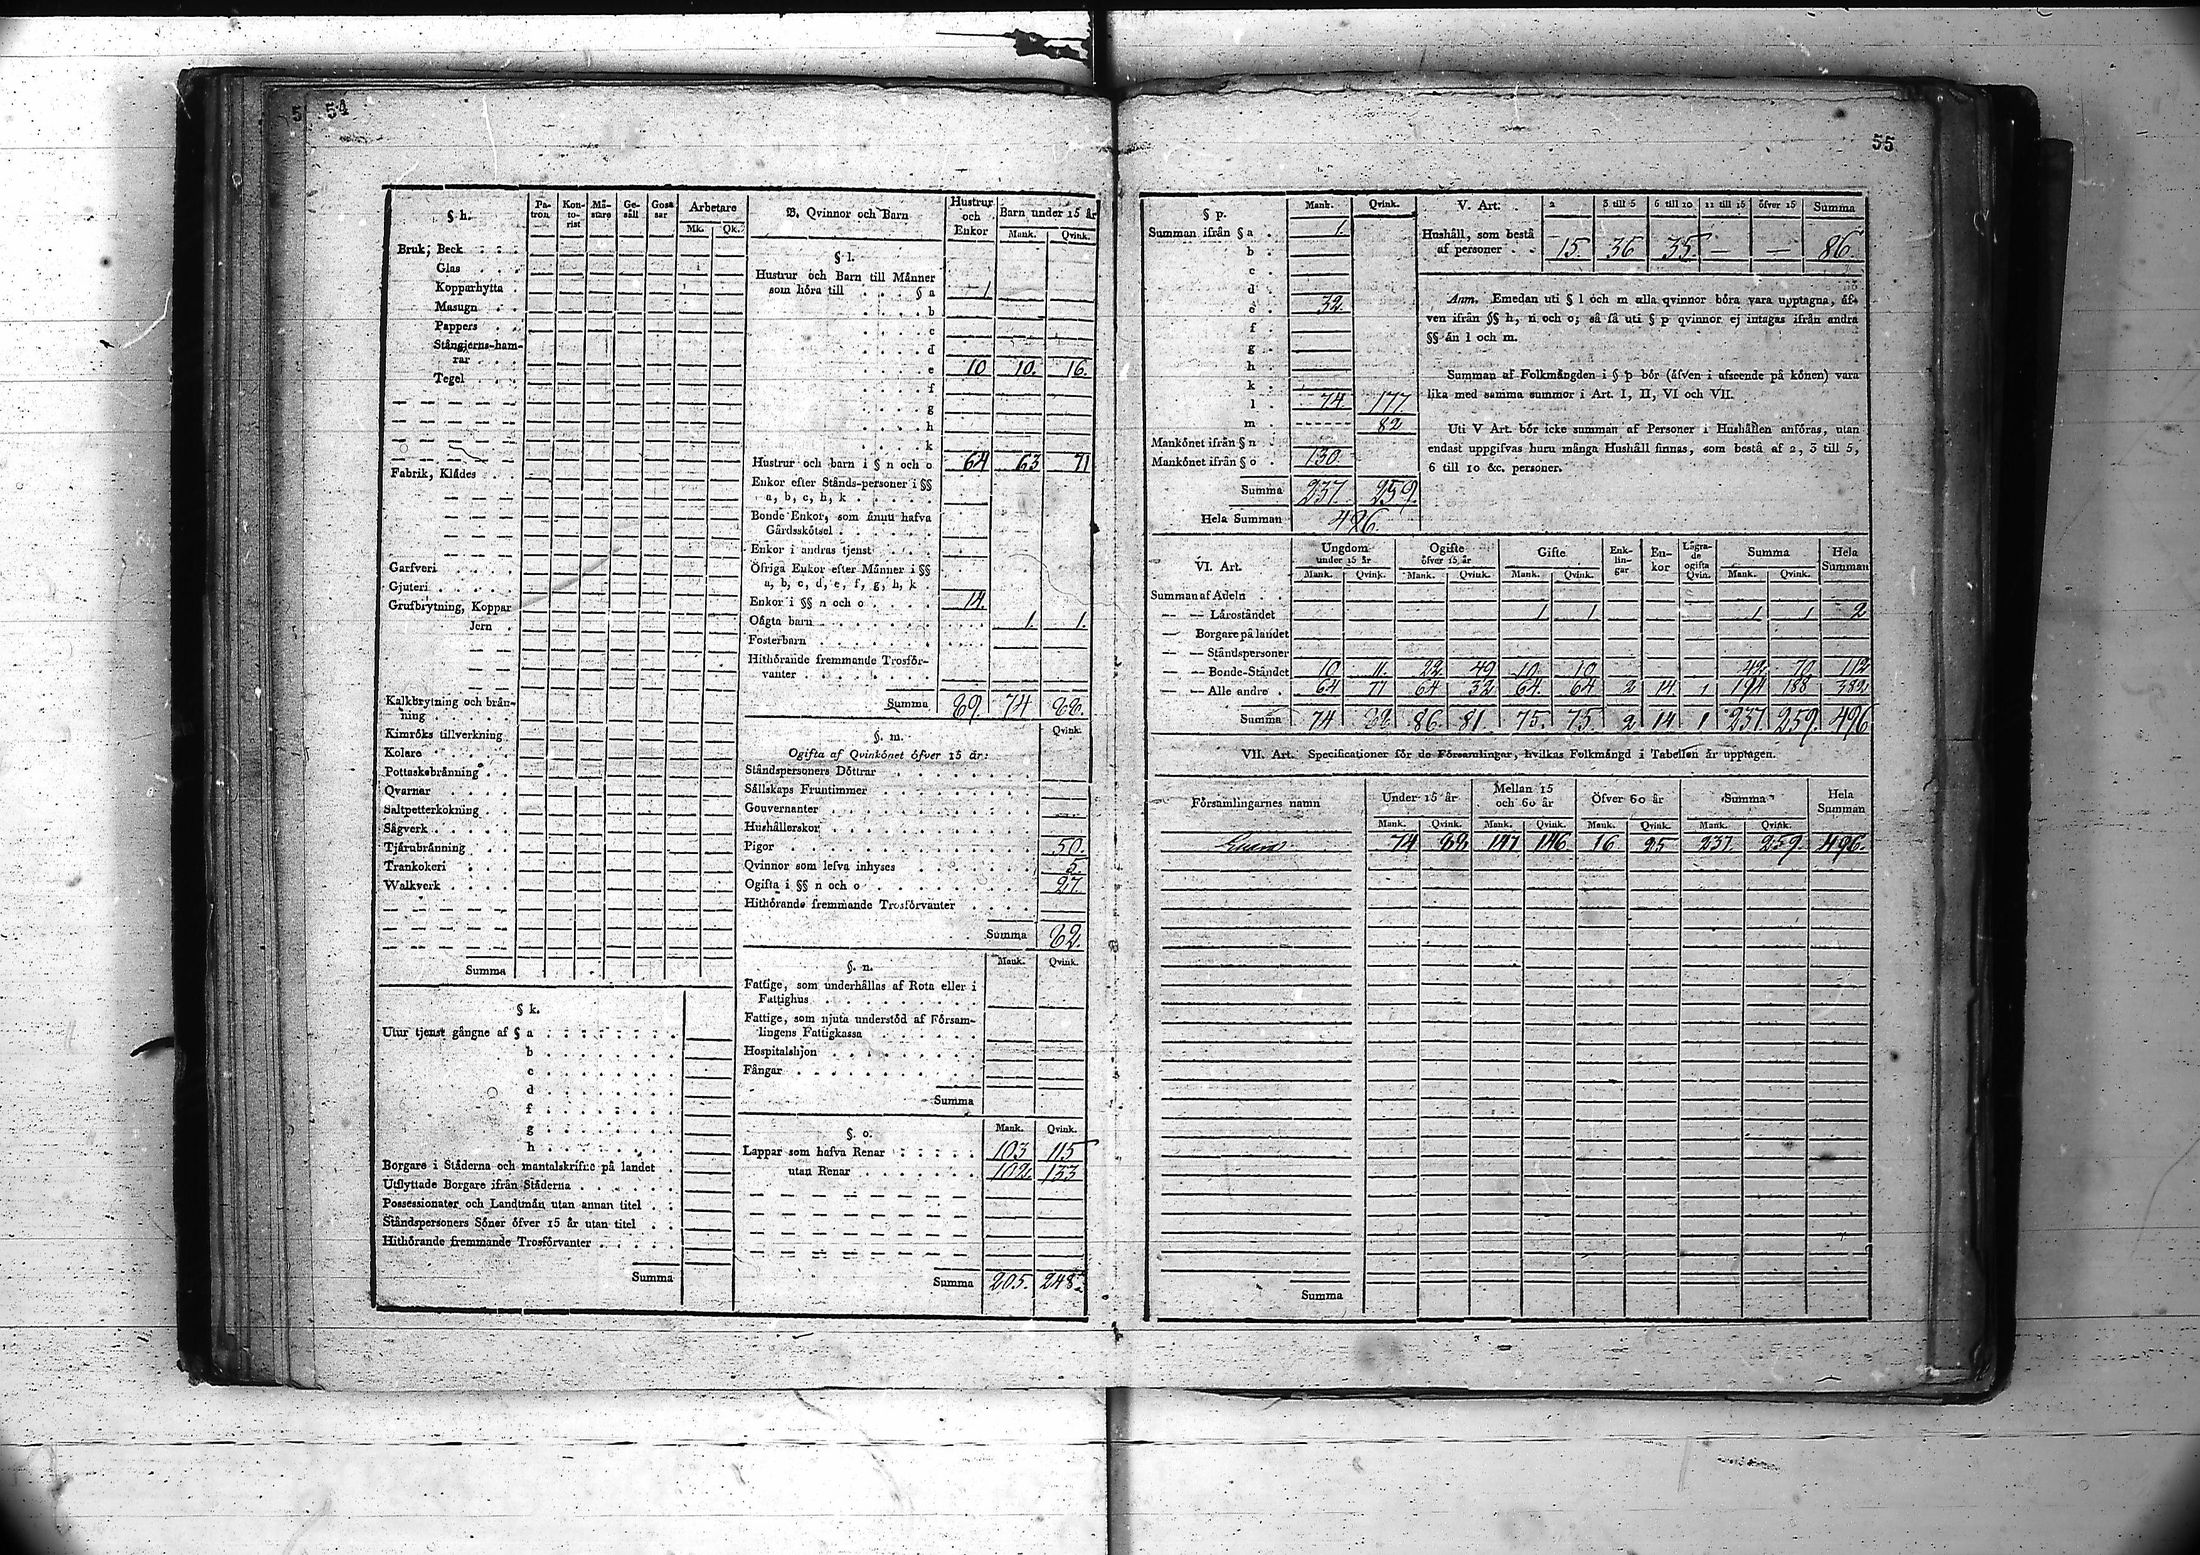 5 54
§ h.
Pa-tron. Kon-to-rist Mä-stare Ge-säll Gos-sar Arbetare
Mk. Qk.
Bruk, Beck
Glas
Kopparhytta
Masugn
Pappers
Stångjerns-ham-
rar
Tegel
Fabrik, Klådes
Garfveri
Gjuteri
Grufbrytning, Koppar
Jern
Kalkbrytning och brän-
ning
Kimröks tillverkning
Kolare
Pottaskebränning
Qvarnar
Saltpetterkokning
Sågverk
Tjärubränning
Trankokeri
Walkverk
Summa
§ k.
Utur tjenst gångne af § a
b
c
d
f
g
h
Borgare i Städerna och mantalskrifne på landet
Utflyttade Borgare ifrån Städerna
Possessionater och Landtmän utan annan titel
Ståndspersoners Söner öfver 15 år utan titel
Hithörande fremmande Trosförvanter
Summa
B, Qvinnor och Barn
Hustrur och Enkor
Barn under 15 år
Mank. Qvink.
§ l.
Hustrur och Barn till Männer
som höra till § a 1
b
c
d
e 10 10. 16.
f
g
h
k
Hustrur och barn i § n och o 64 63 71
Enkor efter Stånds-personer i §§
a, b, c, h, k
Bonde Enkor, som ännu hafva
Gårdsskötsel
Enkor i andras tjenst
Öfriga Enkor efter Männer i §§
a, b, c, d, e, f, g, h, k
Enkor i §§ n och o 14.
Oägta barn 1. 1.
Fosterbarn
Hithörande fremmande Trosför-
vanter
Summa 89. 74 88.
§. m.
Qvink.
Ogifta af Qvinkönet öfver 15 år:
Ståndspersoners Döttrar
Sällskaps Fruntimmer
Gouvernanter
Hushållerskor
Pigor 50.
Qvinnor som lefva inhyses 5.
Ogifta i §§ n och o 27.
Hithörande fremmande Trosförvanter
Summa 82.
§. n.
Mank. Qvink.
Fattige, som underhållas af Rota eller i
Fattighus
Fattige, som njuta understöd af Försam-
lingens Fattigkassa
Hospitalshjon
Fångar
Summa
§. o.
Mank. Qvink.
Lappar som hafva Renar 103 115
utan Renar 102. 133
Summa 205. 248.
55
§ p.
Mank. Qvink.
Summan ifrån § a 1.
b
c
d
e 32.
f
g
h
k
l 74. 177.
m 82
Mankönet ifrån § n
Mankönet ifrån § o 130.
Summa 237. 259.
Hela Summan 496.
V. Art.
2 3 till 5 6 till 10 11 till 15 öfver 15 Summa
Hushåll, som bestå
af personer 15. 36 35. — — 86.
Anm. Emedan uti § l och m alla qvinnor böra vara upptagna, äf-
ven ifrån §§ h, n och o; så få uti § p qvinnor ej intagas ifrån andra
§§ än l och m.
Summan af Folkmängden i § p bör (äfven i afseende på könen) vara
lika med samma summor i Art. I, II, VI och VII.
Uti V Art. bör icke summan af Personer i Hushållen anföras, utan
endast uppgifvas huru många Hushåll finnas, som bestå af 2, 3 till 5,
6 till 10 &c. personer.
VI. Art.
Ungdom under 15 år Ogifte öfver 15 år Gifte Enk-lin-gar En-kor Lägra-de ogifta Qvin. Summa Hela Summan
Mank. Qvink. Mank. Qvink. Mank. Qvink. Mank. Qvink.
Summan af Adeln
— — Läroståndet 1 1 1 1 2
— Borgare på landet
— — Ståndspersoner
— — Bonde-Ståndet 10 11. 22. 49 10 10 42. 70 112
— — Alle andre 64 77 64 32 64. 64 2 14 1 194 188 382
Summa 74 88 86. 81. 75. 75. 2 14 1 237. 259. 496
VII. Art. Specificationer för de Församlingar, hvilkas Folkmängd i Tabellen är upptagen.
Församlingarnes namn Under 15 år Mellan 15 och 60 år Öfver 60 år Summa Hela Summan
Mank. Qvink. Mank. Qvink. Mank. Qvink. Mank. Qvink.
74 88 147 146 16 25 237. 259. 496.
Summa